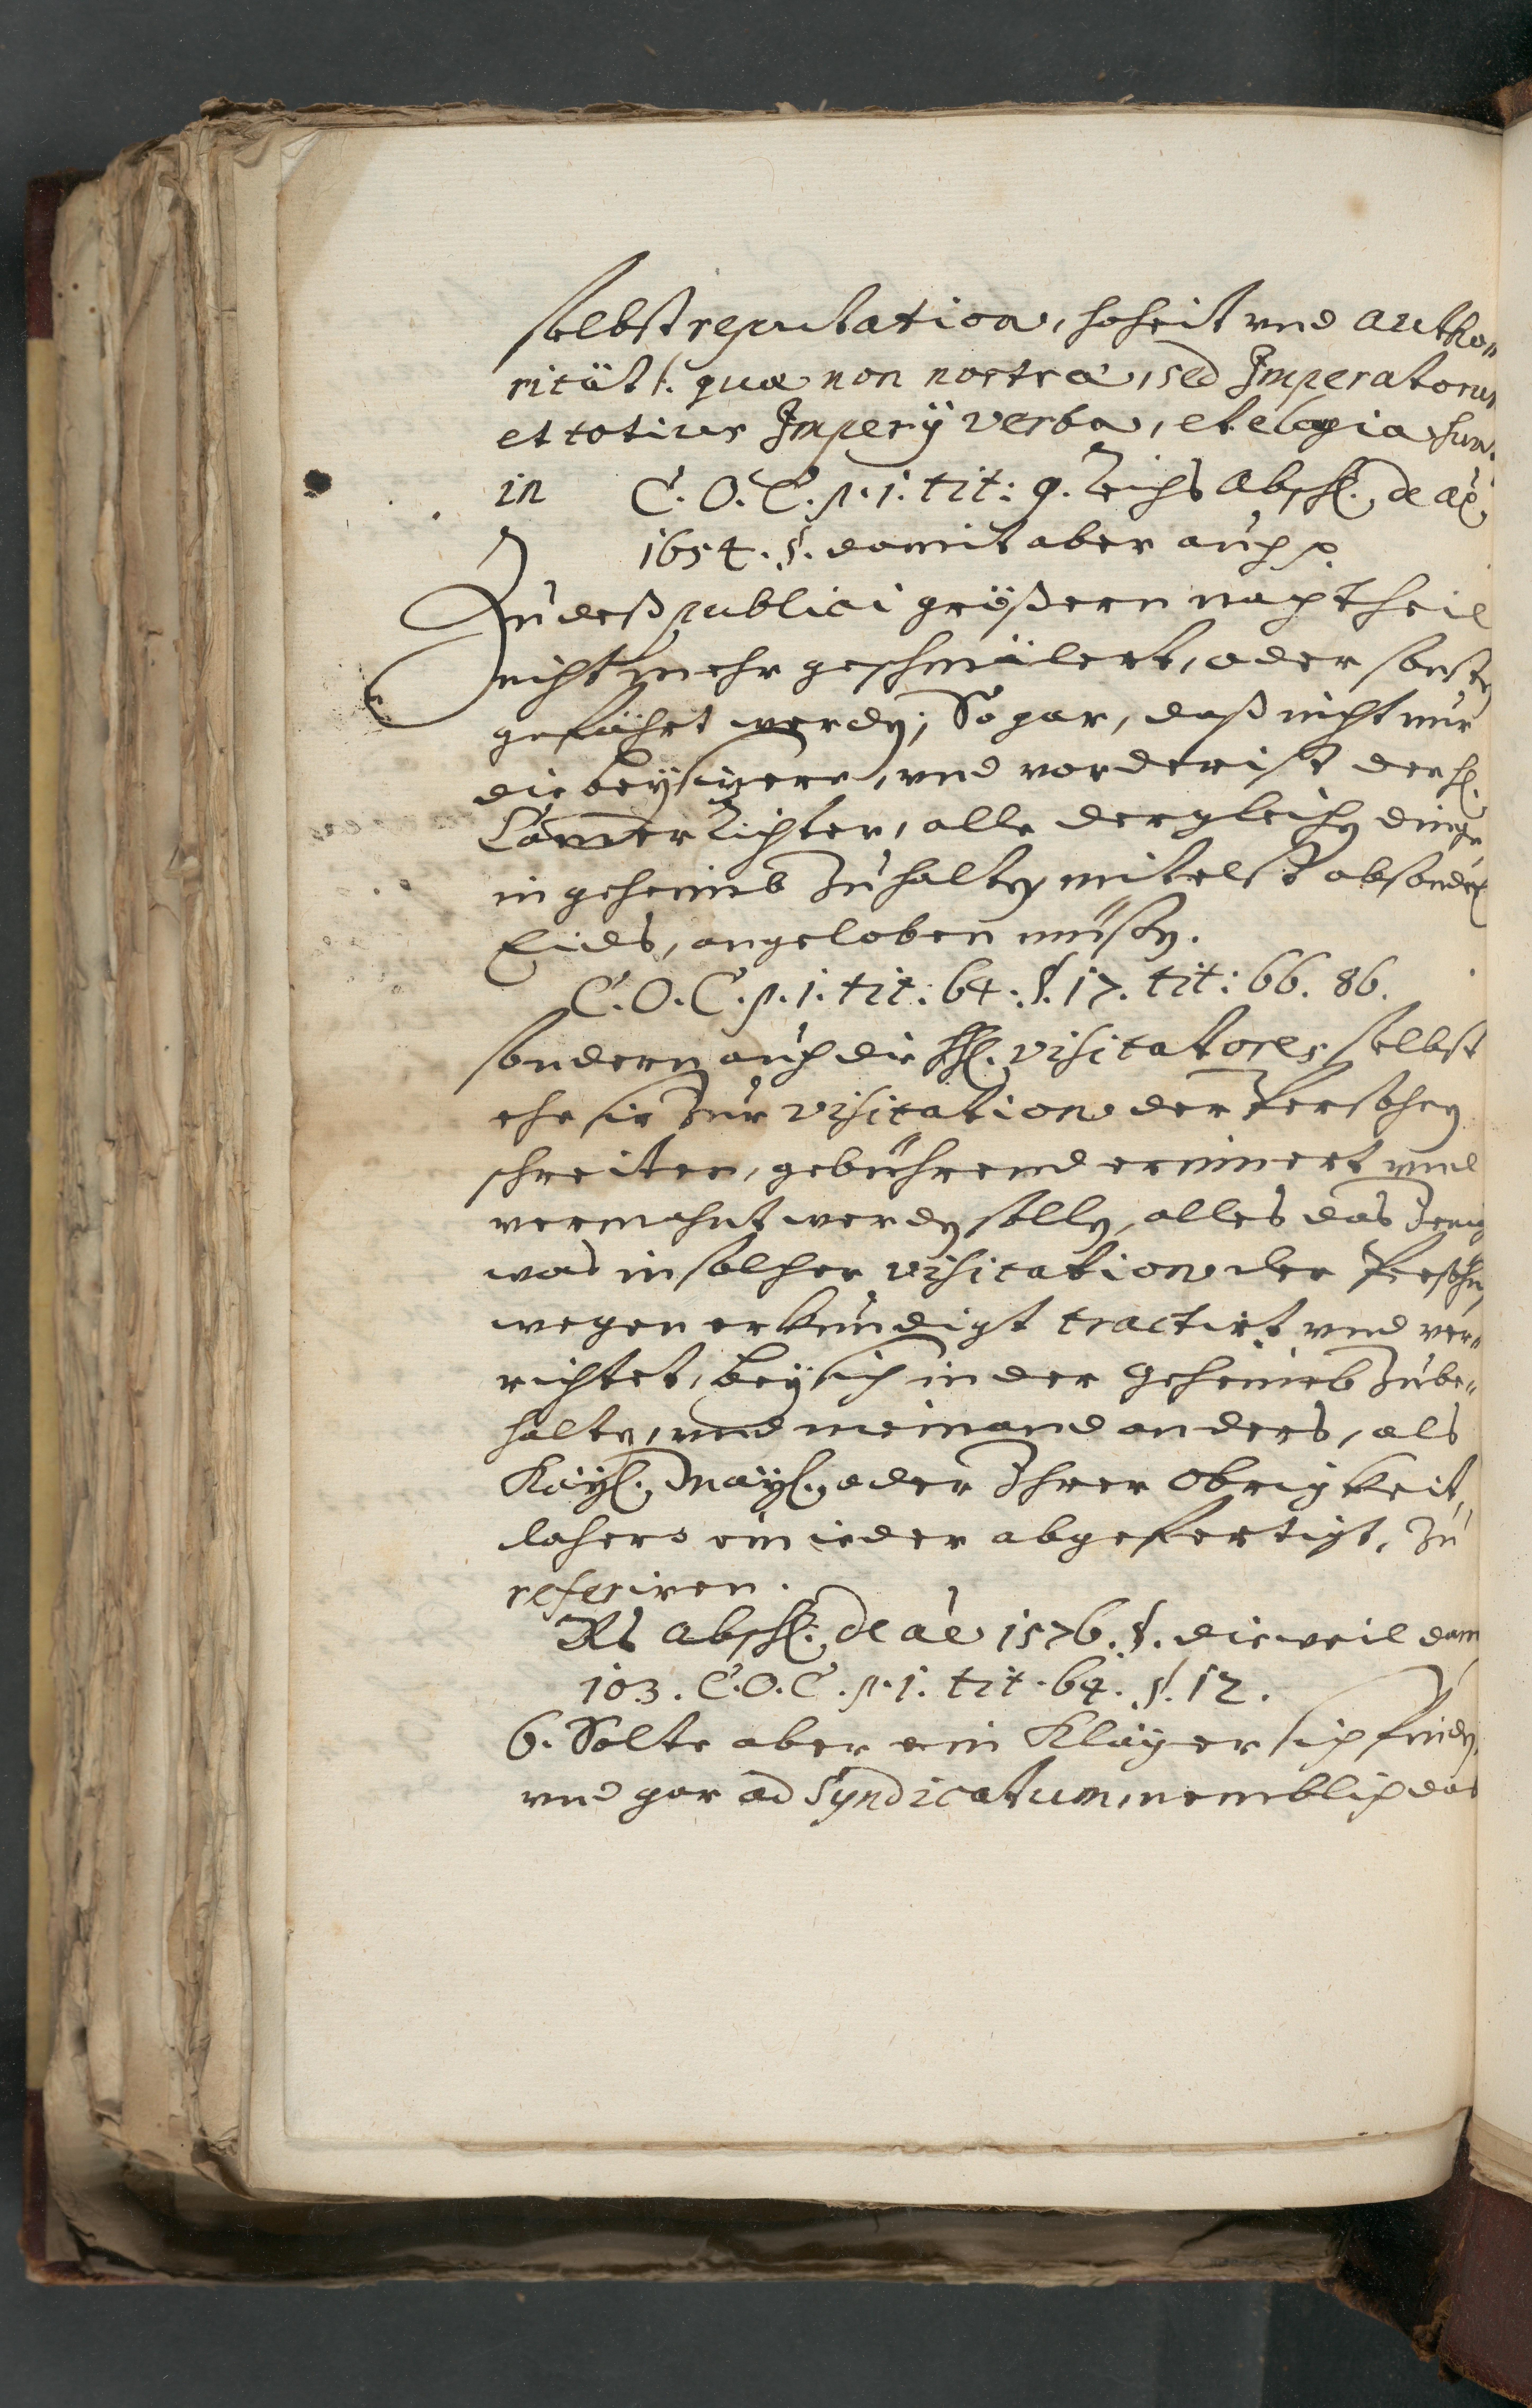 selbst reputation, hoheit vnd autho„
rität /: quæ non nostra, sed Imperatoris
et totius Imperÿ verba, et elogia sun.
in C. O. C. p. 1. tit: 9. Reichs Absch. de aõ
1654. §. damit aber auch p.
Zu deß publici größern nachtheil
nicht mehr geschmälert, oder sonsten
gefährt werden; So gar, daß nicht nur
die beysitzere, vnd vorderist der H.
Camer Richter, alle dergleichen dinge
in geheimb zu halten, mitelst absonder
Eids, angeloben müßen.
C. O. C. p. 1. tit: 64. §. 17. tit: 66. 86.
sondern auch die HH. visitatores selbst
ehe sie zur visitation der Persohnen
schreiten, gebührend erinnert vnd
vermahnt werden sollen, alles das Jenig
was in solcher visitation der Persohn
wegen erkundigt tractirt vnd ver„
richtet, bey sich in der geheimb zube„
halten, vnd niemand anders, als
Kayl. Mayl. oder Ihrer Obrigkeit,
dahero ein ieder abgefertigt, zu
referiren.
Rs Absch. de aõ 1576. §. dieweil dann
103. C. O. C. p. 1. tit. 64. §. 12.
6. Solte aber ein Kläger sich finden,
vnd gar ad Syndicatum, nemblich das